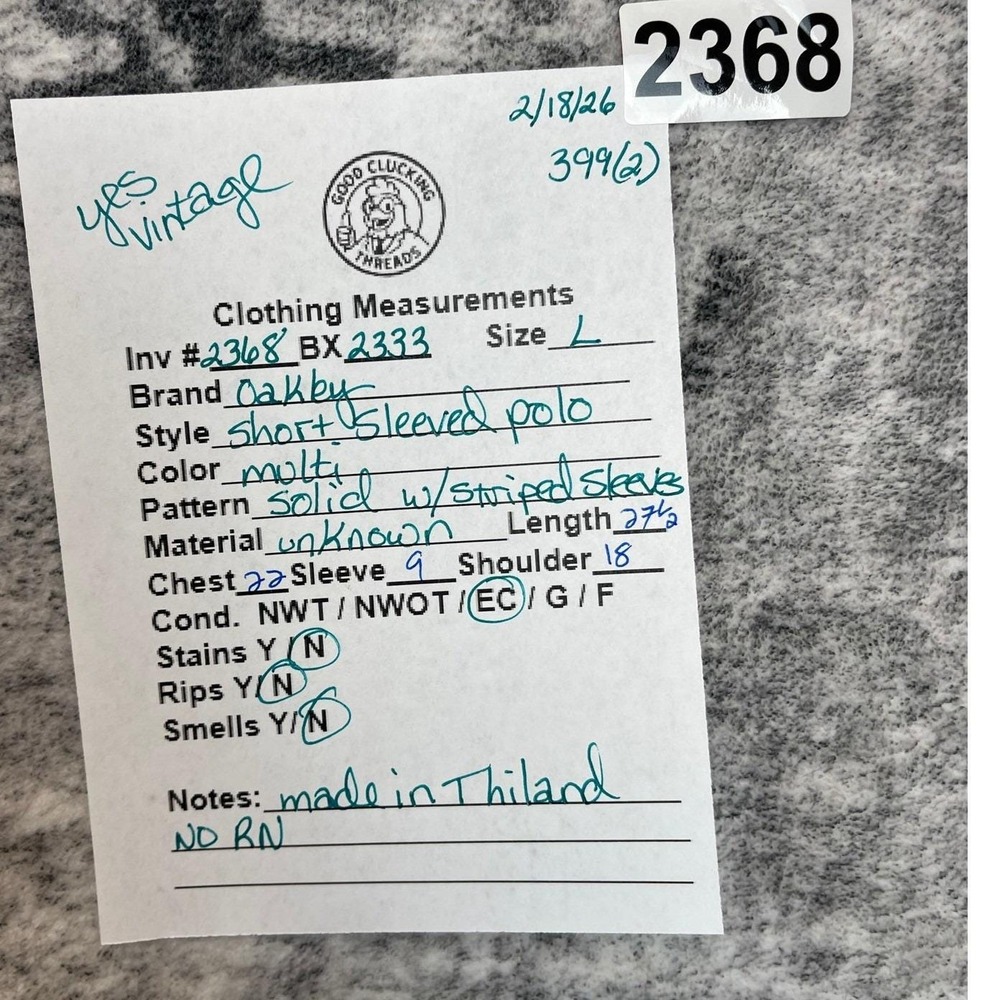 2368
2/18/26
399(2)
yes vintage
GOOD CLUCKING THREADS
Clothing Measurements
Inv #2368 BX 2333 Size L
Brand Oakby
Style short sleeved polo
Color multi
Pattern solid w/striped sleeves
Material unknown Length 27 1/2
Chest 22 Sleeve 9 Shoulder 18
Cond. NWT / NWOT / EC / G / F
Stains Y / N
Rips Y/ N
Smells Y/ N
Notes: made in Thiland
NO RN